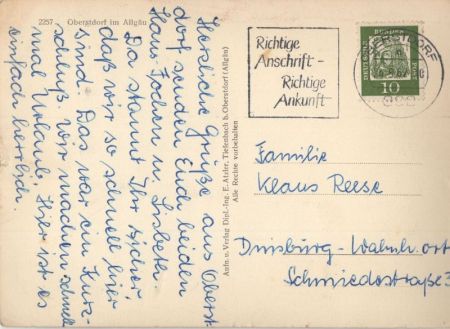 2257 Oberstdorf im Allgäu
Herzliche Grüße aus Oberst-
dorf senden Euch beiden
Hans-Jochen u. Lisbeth
Da staunt Ihr sicher,
daß wir so schnell hier
sind. Das war ein Kurz-
schluß. Wir machen schnell
mal Urlaub. Hier ist es
einfach herrlich.
Aufn. u. Verlag Dipl.-Ing. E. Atzler, Tiefenbach b. Oberstdorf (Allgäu)
Alle Rechte vorbehalten
Richtige
Anschrift –
Richtige
Ankunft
DEUTSCHE BUNDESPOST
10
Familie
Klaus Reese
Duisburg-Wahnh. ort
Schmiedestraße 3